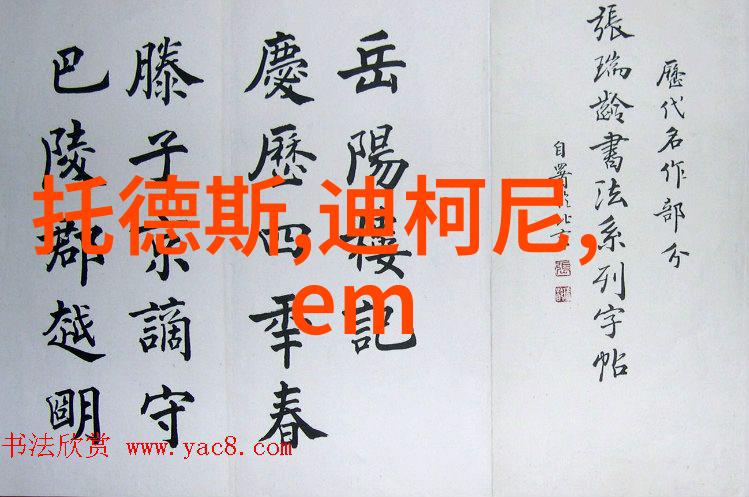 歷代名作部分
張瑞齡書法系列字帖
自署於北京
岳陽樓記
慶歷四年春
滕子京謫守
巴陵郡越明
托德斯,迪柯尼,
em
书法欣赏 www.yac8.com